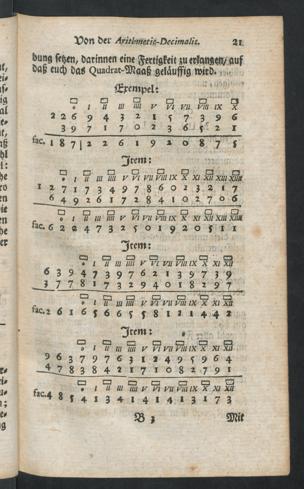 Von der Arithmetic-Decimalit. 21
bung setzen, darinnen eine Fertigkeit zu erlangen, auf
daß euch das Quadrat-Maaß geläuffig wird.
Exempel:
I II III IIII V VI VII VIII IX X
2 2 6 9 4 3 2 1 5 7 3 9 6
3 9 7 1 7 0 2 3 6 5 2 1
fac. 1 8 7 | 2 2 6 1 9 2 0 8 7 5
Item:
I II III IIII V VI VII VIII IX X XI XII XIII XIIII
1 2 7 1 7 3 4 9 7 8 6 0 2 3 2 1 7
6 4 9 2 6 1 7 2 8 4 1 0 2 7 0 6
I II III IIII V VI VII VIII IX X XI XII XIII XIIII
fac. 6 2 2 4 7 3 2 5 0 1 9 2 0 5 1 1
Item:
I II III IIII V VI VII VIII IX X XI XII
6 3 9 4 7 3 9 7 6 2 1 3 9 7 3 9
3 7 7 8 1 7 3 2 9 4 0 1 8 2 9 7
I II III IIII V VI VII VIII IX X XI XII
fac. 2 6 1 6 5 6 6 5 5 8 1 2 1 4 4 2
Item:
I II III IIII V VI VII VIII IX X XI XII
9 6 3 7 9 7 6 3 1 2 4 9 5 9 6 4
4 7 8 3 8 4 2 1 7 1 0 8 2 7 9 1
I II III IIII V VI VII VIII IX X XI XII
fac. 4 8 5 4 1 3 4 1 4 1 4 1 3 1 7 3
B 3 Mit